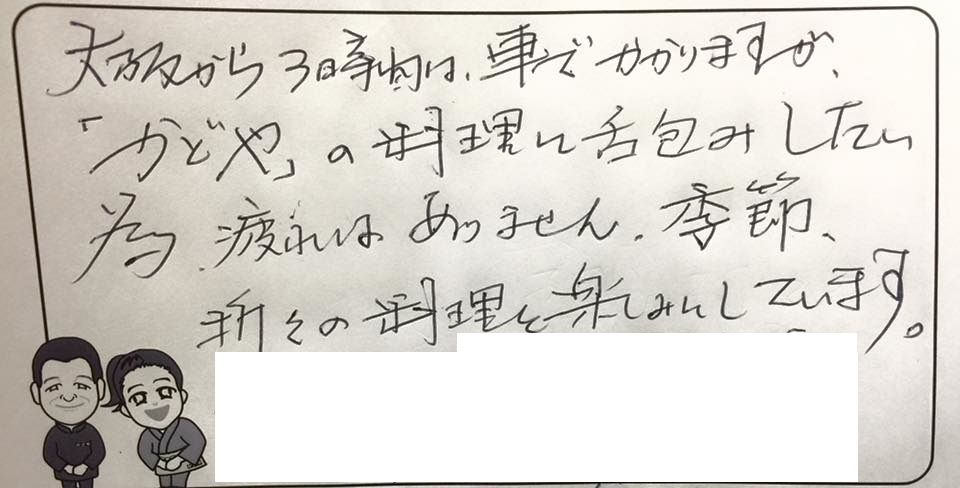 大阪から3時間は、車でかかりますが、
「かどや」の料理に舌包みしたい
為、疲れはありません。季節、
折々の料理を楽しみにしています。